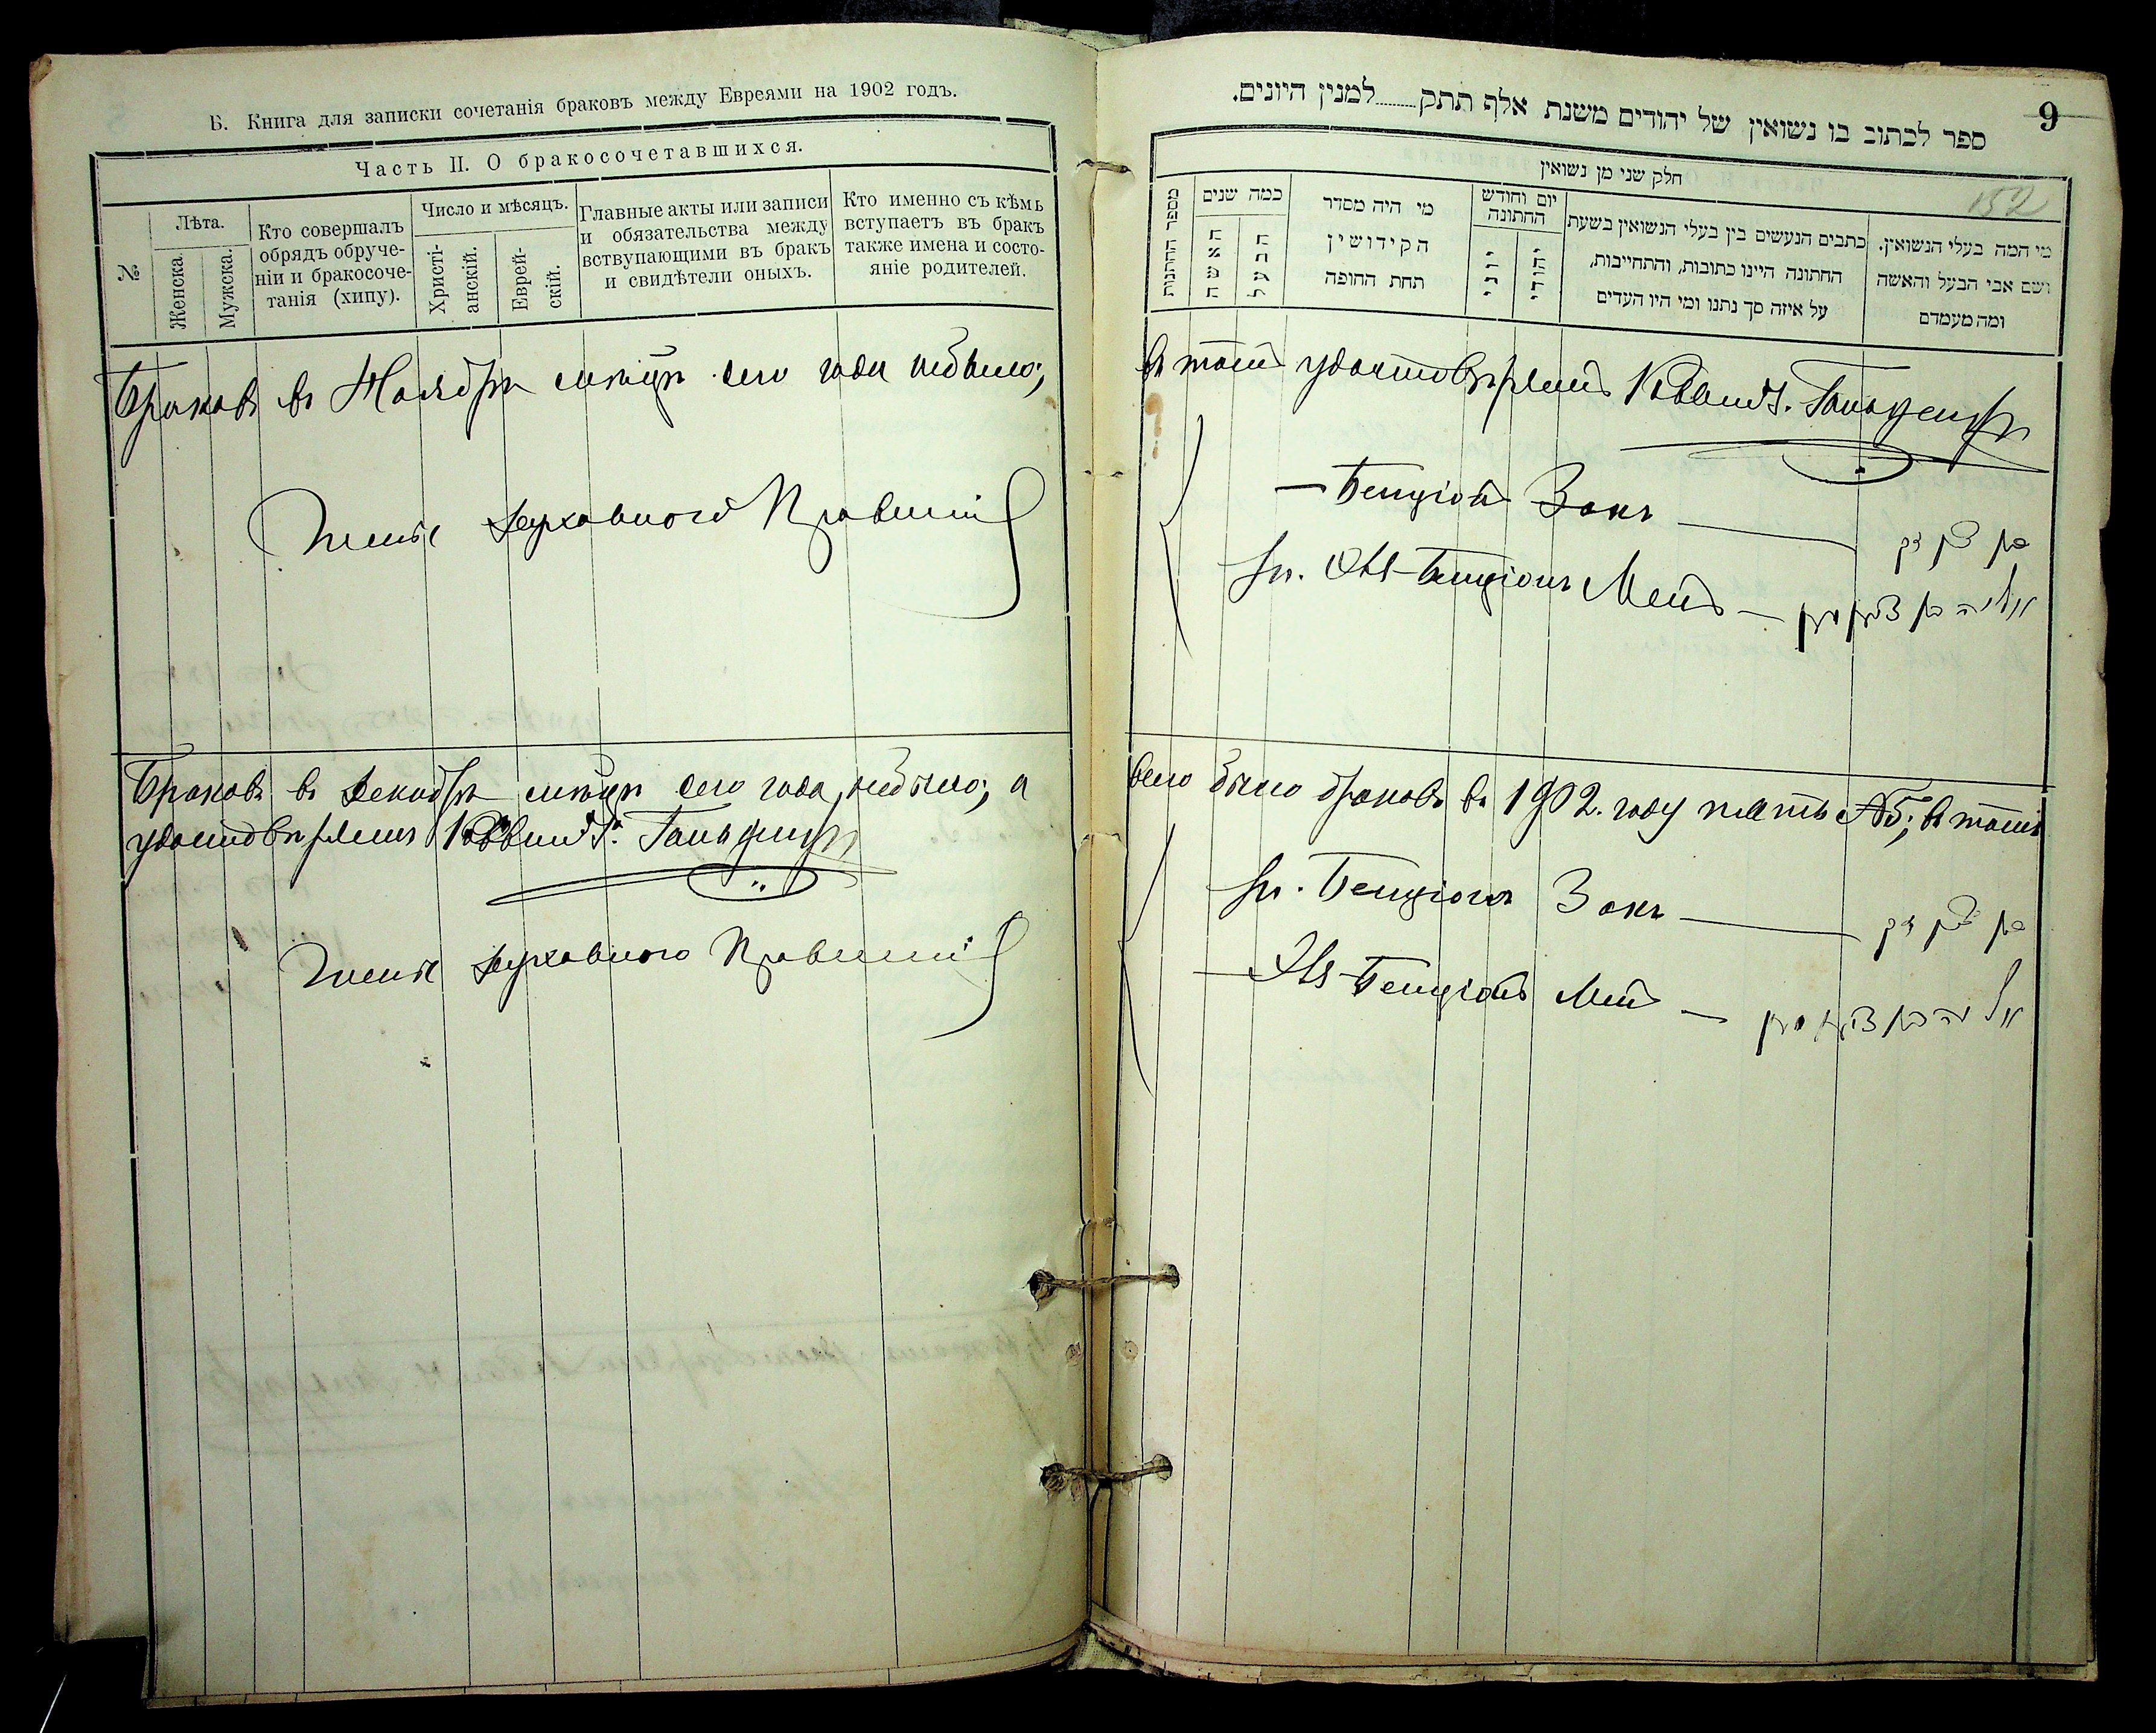 Б. Книга для записки сочетанія браковъ между Евреями на 1902 годъ.
Часть II. О бракосочетавшихся.
№
Лѣта.
Женска.
Мужска.
Кто совершалъ
обрядъ обруче-
ніи и бракосоче-
танія (хипу).
Число и мѣсяцъ.
Христі-
анскій.
Еврей-
скій.
Главные акты или записи
и обязательства между
вствупающими въ бракъ
и свидѣтели оныхъ.
Кто именно съ кѣмъ
вступаетъ въ бракъ
также имена и состо-
яніе родителей.
Браковъ въ Ноябрѣ мѣсяцѣ сего года небыло;
Члены Духовного Правленія
Браковъ въ Декабрѣ мѣсяцѣ сего года небыло; а
удостовѣряемъ Раввинъ
Члены Духовного Правленія
9
152
ספר לכתוב בו נשואין של יהודים משנת אלף תתק למנין היונים.
חלק שני מן נשואין
מספר החתונות
כמה שנים
האשה
הבעל
מי היה מסדר
הקידושין
תחת החופה
יום וחודש
החתונה
יוני
יהודי
כתבים הנעשים בין בעלי הנשואין בשעת
החתונה היינו כתובות, והתחייבות,
על איזה סך נתנו ומי היו העדים
מי המה בעלי הנשואין.
ושם אבי הבעל והאשה
ומה מעמדם
въ томъ удостовѣряемъ Раввинъ
Бенціонъ Закъ בן ציון זק
Бенціонъ אליה בן ציון
всего было браковъ въ 1902. году пять №5; въ томъ
Бенціонъ Закъ בן ציון זק
Бенціонъ אליה בן ציון